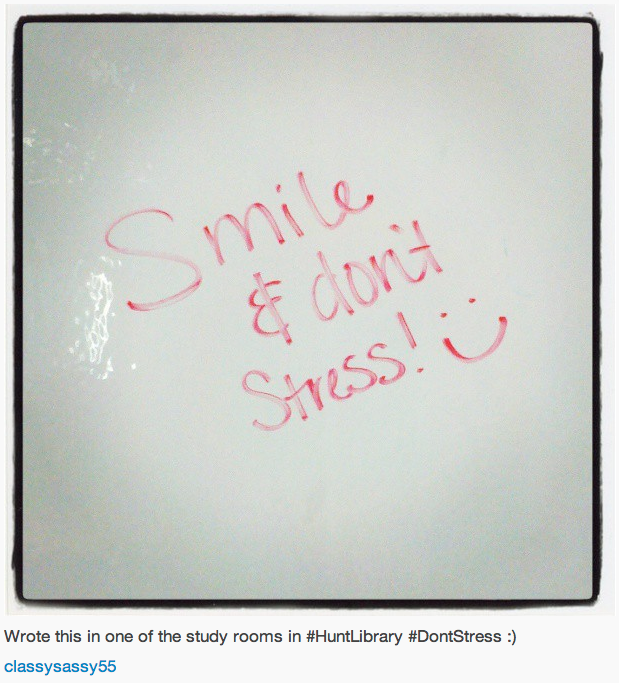 Smile
& don't
Stress! :)
Wrote this in one of the study rooms in #HuntLibrary #DontStress :)
classysassy55